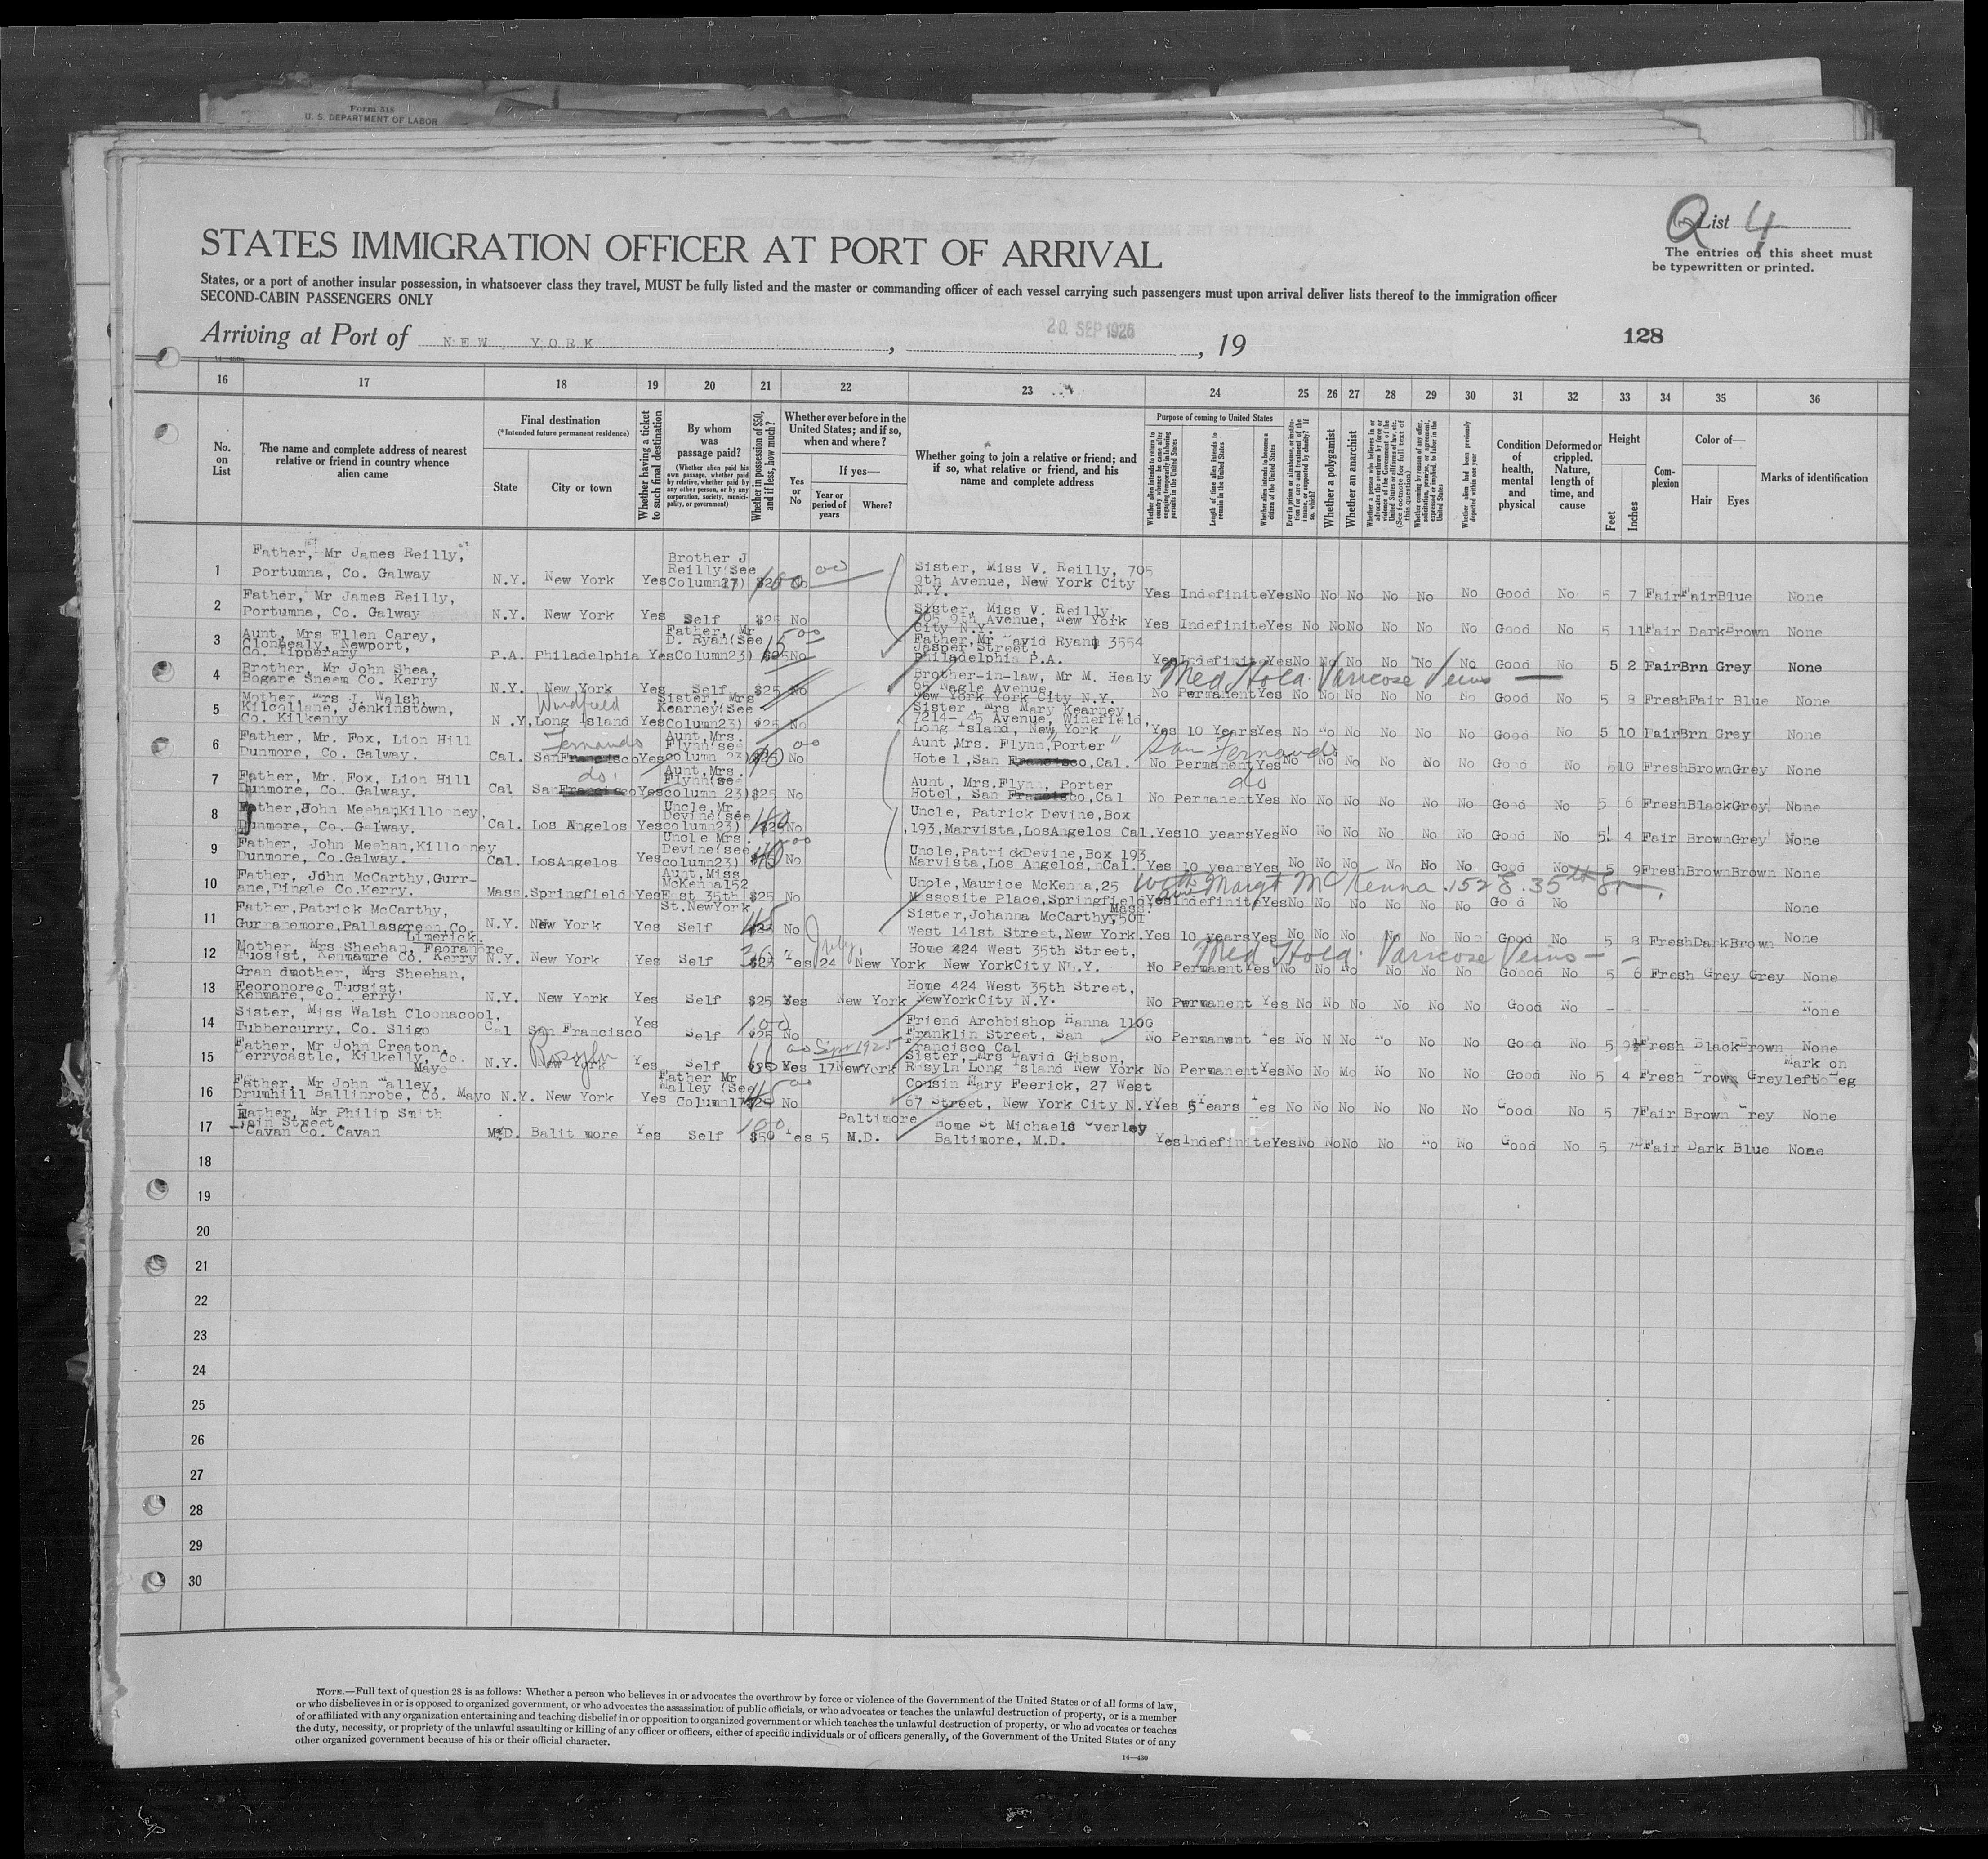 Form 518
U. S. DEPARTMENT OF LABOR
Q List 4
STATES IMMIGRATION OFFICER AT PORT OF ARRIVAL
The entries on this sheet must
be typewritten or printed.
States, or a port of another insular possession, in whatsoever class they travel, MUST be fully listed and the master or commanding officer of each vessel carrying such passengers must upon arrival deliver lists thereof to the immigration officer
SECOND-CABIN PASSENGERS ONLY
Arriving at Port of NEW YORK , 20 SEP 1926 , 19
128
16 17 18 19 20 21 22 23 24 25 26 27 28 29 30 31 32 33 34 35 36
No. on List
The name and complete address of nearest relative or friend in country whence alien came
Final destination
(*Intended future permanent residence)
State
City or town
Whether having a ticket to such final destination
By whom was passage paid?
(Whether alien paid his own passage, whether paid by relative, whether paid by any other person, or by any corporation, society, municipality, or government)
Whether in possession of $50, and if less, how much?
Whether ever before in the United States; and if so, when and where?
Yes or No
If yes—
Year or period of years
Where?
Whether going to join a relative or friend; and if so, what relative or friend, and his name and complete address
Purpose of coming to United States
Whether alien intends to return to country whence he came after engaging temporarily in laboring pursuits in the United States
Length of time alien intends to remain in the United States
Whether alien intends to become a citizen of the United States
Ever in prison or almshouse, or institution for care and treatment of the insane, or supported by charity? If so, which?
Whether a polygamist
Whether an anarchist
Whether alien had been previously deported within one year
Condition of health, mental and physical
Deformed or crippled. Nature, length of time, and cause
Height
Feet
Inches
Complexion
Color of—
Hair
Eyes
Marks of identification
1 Father, Mr James Reilly, Portumna, Co. Galway N.Y. New York Yes Brother J Reilly(See Column 17) $25 100 00 No Sister, Miss V. Reilly, 705 9th Avenue, New York City N.Y. Yes Indefinite Yes No No No No No No Good No 5 7 Fair Fair Blue None
2 Father, Mr James Reilly, Portumna, Co. Galway N.Y. New York Yes Self $25 No Sister, Miss V. Reilly, 705 9th Avenue, New York City N.Y. Yes Indefinite Yes No No No No No No Good No 5 11 Fair Dark Brown None
3 Aunt, Mrs Ellen Carey, Clonhealy, Newport, Co. Tipperary P.A. Philadelphia Yes Father, Mr D. Ryan(See Column23) $25 No Father, Mr David Ryan 3554 Jasper Street, Philadelphia P.A. Yes Indefinite Yes No No No No No No Good No 5 2 Fair Brn Grey None
4 Brother, Mr John Shea, Bogare Sneem Co. Kerry N.Y. New York Yes Self $25 No Brother-in-law, Mr M. Healy 95 Nagle Avenue, New York York City N.Y. Med Hold. Varicose Veins No Permanent Yes No No No No No No Good No 5 8 Fresh Fair Blue None
5 Mother, Mrs J. Walsh, Kilcollane, Jenkinstown, Co. Kilkenny N.Y. Winfield Long Island Yes Sister, Mrs Kearney(See Column23) $25 No Sister, Mrs Mary Kearney, 7214-45 Avenue, Winefield, Long Island, New York Yes 10 Years Yes No No No No No No Good No 5 10 Fair Brn Grey None
6 Father, Mr. Fox, Lion Hill Dunmore, Co. Galway. Cal. San Francisco Fernando Yes Aunt, Mrs. Flynn(see column 23) $25 No Aunt, Mrs. Flynn, Porter Hotel, San Francisco, Cal. San Fernando No Permanent Yes No No No No No No Good No 5 10 Fresh Brown Grey None
7 Father, Mr. Fox, Lion Hill Dunmore, Co. Galway. Cal San Francisco do. Yes Aunt, Mrs. Flynn(see column 23) $25 No Aunt, Mrs. Flynn, Porter Hotel, San Francisco, Cal do No Permanent Yes No No No No No No Good No 5 6 Fresh Black Grey None
8 Father, John Meehan, Killooney, Dunmore, Co. Galway. Cal. Los Angelos Yes Uncle, Mr. Devine(see column23) No Uncle, Patrick Devine, Box 193, Marvista, LosAngelos Cal. Yes 10 years Yes No No No No No No Good No 5 4 Fair Brown Grey None
9 Father, John Meehan, Killooney Dunmore, Co.Galway. Cal. LosAngelos Yes Uncle Mrs. Devine(see column23) No Uncle, PatrickDevine, Box 193 Marvista, Los Angelos, Cal. Yes 10 years Yes No No No No No No Good No 5 9 Fresh Brown Brown None
10 Father, John McCarthy, Gurrane, Dingle Co.Kerry. Mass. Springfield Yes Aunt, Miss McKenna 152 East 35th St. NewYork $25 No Uncle, Maurice McKenna, 25 Place, Springfield Mass. with Margt McKenna. 152 E. 35th St Yes Indefinite Yes No No No No No No Good No None
11 Father, Patrick McCarthy, Gurranemore, Pallasgreen, Co. Limerick. N.Y. New York Yes Self $25 45 No Sister, Johanna McCarthy, 501 West 141st Street, New York. Yes 10 years Yes No No No No No No Good No 5 8 Fresh Dark Brown None
12 Mother, Mrs Sheehan, Feoramore, Tuosist, Kenmamre Co. Kerry N.Y. New York Yes Self $25 Yes July, 24 New York Home 424 West 35th Street, New YorkCity N.Y. Med Hold. Varicose Veins No Permanent Yes No No No No No No Goood No 5 6 Fresh Grey Grey None
13 Gran dmother, Mrs Sheehan, Feoronore Tuosist, Kenmare, Co. Kerry, N.Y. New York Yes Self $25 Yes New York Home 424 West 35th Street, NewYorkCity N.Y. No Permanent Yes No No No No No No Good No None
14 Sister, Miss Walsh Cloonacool, Tubbercurry, Co. Sligo Cal San Francisco Yes Self $25 100 No Friend Archbishop Hanna 1100 Franklin Street, San Francisco Cal No Permanent Yes No N No No No No Good No 5 9½ Fresh Black Brown None
15 Father, Mr John Creaton, Derrycastle, Kilkelly, Co. Mayo N.Y. New York Roslyn Yes Self Yes 17 Sept 1925 NewYork Sister, Mrs David Gibson, Rosyln Long Island New York No Permanent Yes No No No No No No Good No 5 4 Fresh Brown Grey Mark on left leg
16 Father, Mr John Malley, Drumhill Ballinrobe, Co. Mayo N.Y. New York Yes Father Mr Malley (See Column17 No Cousin Mary Feerick, 27 West 67 Street, New York City N.Y. Yes 5 Years Yes No No No No No No Good No 5 7 Fair Brown Grey None
17 Father, Mr Philip Smith Main Street, Cavan Co. Cavan M.D. Balit more Yes Self $50 100 Yes 5 Baltimore M.D. Home St Michaels Overley Baltimore, M.D. Yes Indefinite Yes No No No No No No Good No 5 7 Fair Dark Blue None
18
19
20
21
22
23
24
25
26
27
28
29
30
NOTE.—Full text of question 28 is as follows: Whether a person who believes in or advocates the overthrow by force or violence of the Government of the United States or of all forms of law,
or who disbelieves in or is opposed to organized government, or who advocates the assassination of public officials, or who advocates or teaches the unlawful destruction of property, or is a member
of or affiliated with any organization entertaining and teaching disbelief in or opposition to organized government or which teaches the unlawful destruction of property, or who advocates or teaches
the duty, necessity, or propriety of the unlawful assaulting or killing of any officer or officers, either of specific individuals or of officers generally, of the Government of the United States or of any
other organized government because of his or their official character.
14—430